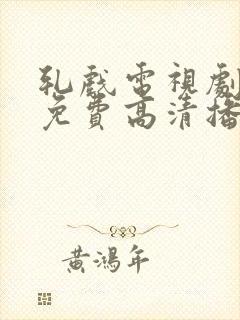 乳戲電視劇
免費高清播
黃鴻年